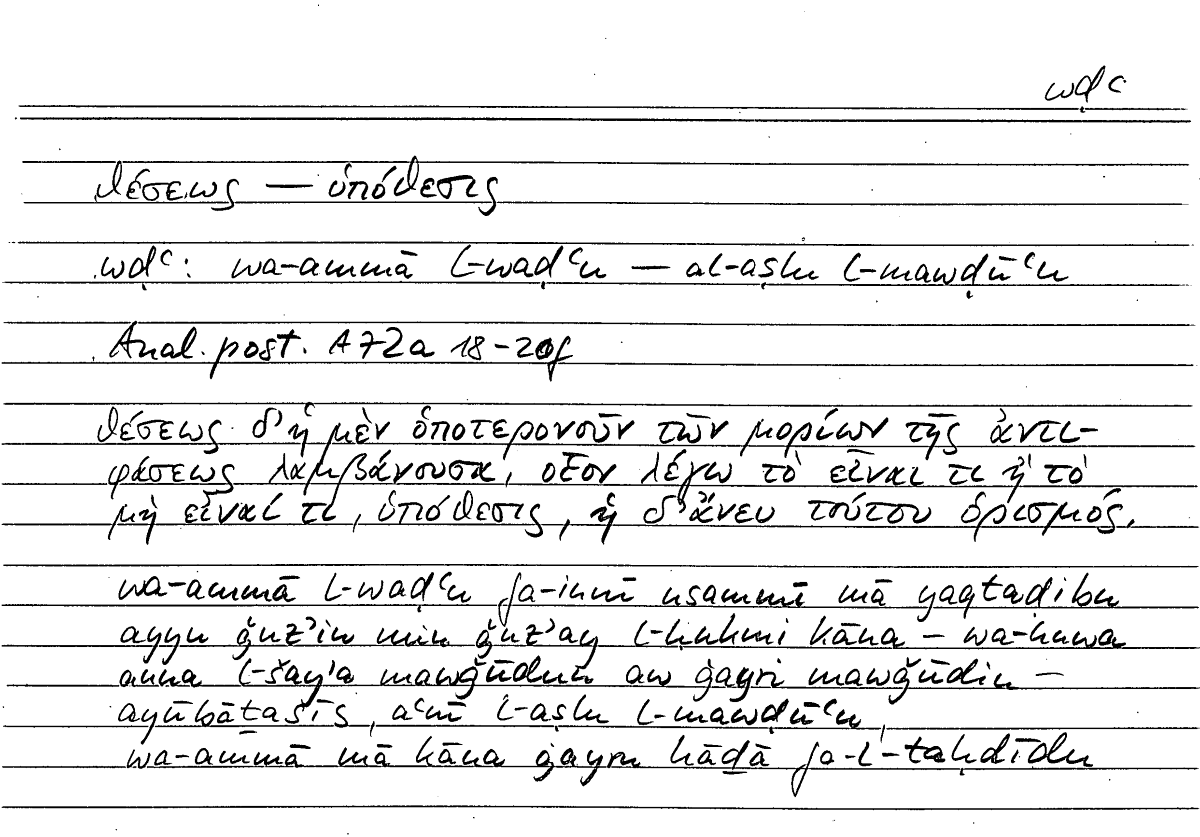 wḍʿ
θέσεως — ὑπόθεσις
wḍʿ: wa-ammā l-waḍʿu — al-aṣlu l-mawḍūʿu
Anal. post. A 72a 18-20f
θέσεως δ' ἡ μὲν ὁποτερονοῦν τῶν μορίων τῆς ἀντι-
φάσεως λαμβάνουσα, οἷον λέγω τὸ εἶναί τι ἢ τὸ
μὴ εἶναί τι, ὑπόθεσις, ἡ δ' ἄνευ τούτου ὁρισμός.
wa-ammā l-waḍʿu fa-innī usammī mā yaqtaḍibu
ayyu ǧuz'in min ǧuz'ay l-ḥukmi kāna – wa-huwa
anna l-šay'a mawǧūdun aw ġayri mawǧūdin –
ayūbāṯasīs, aʿnī l-aṣlu l-mawḍūʿu,
wa-ammā mā kāna ġayru hāḏā fa-l-taḥdīdu